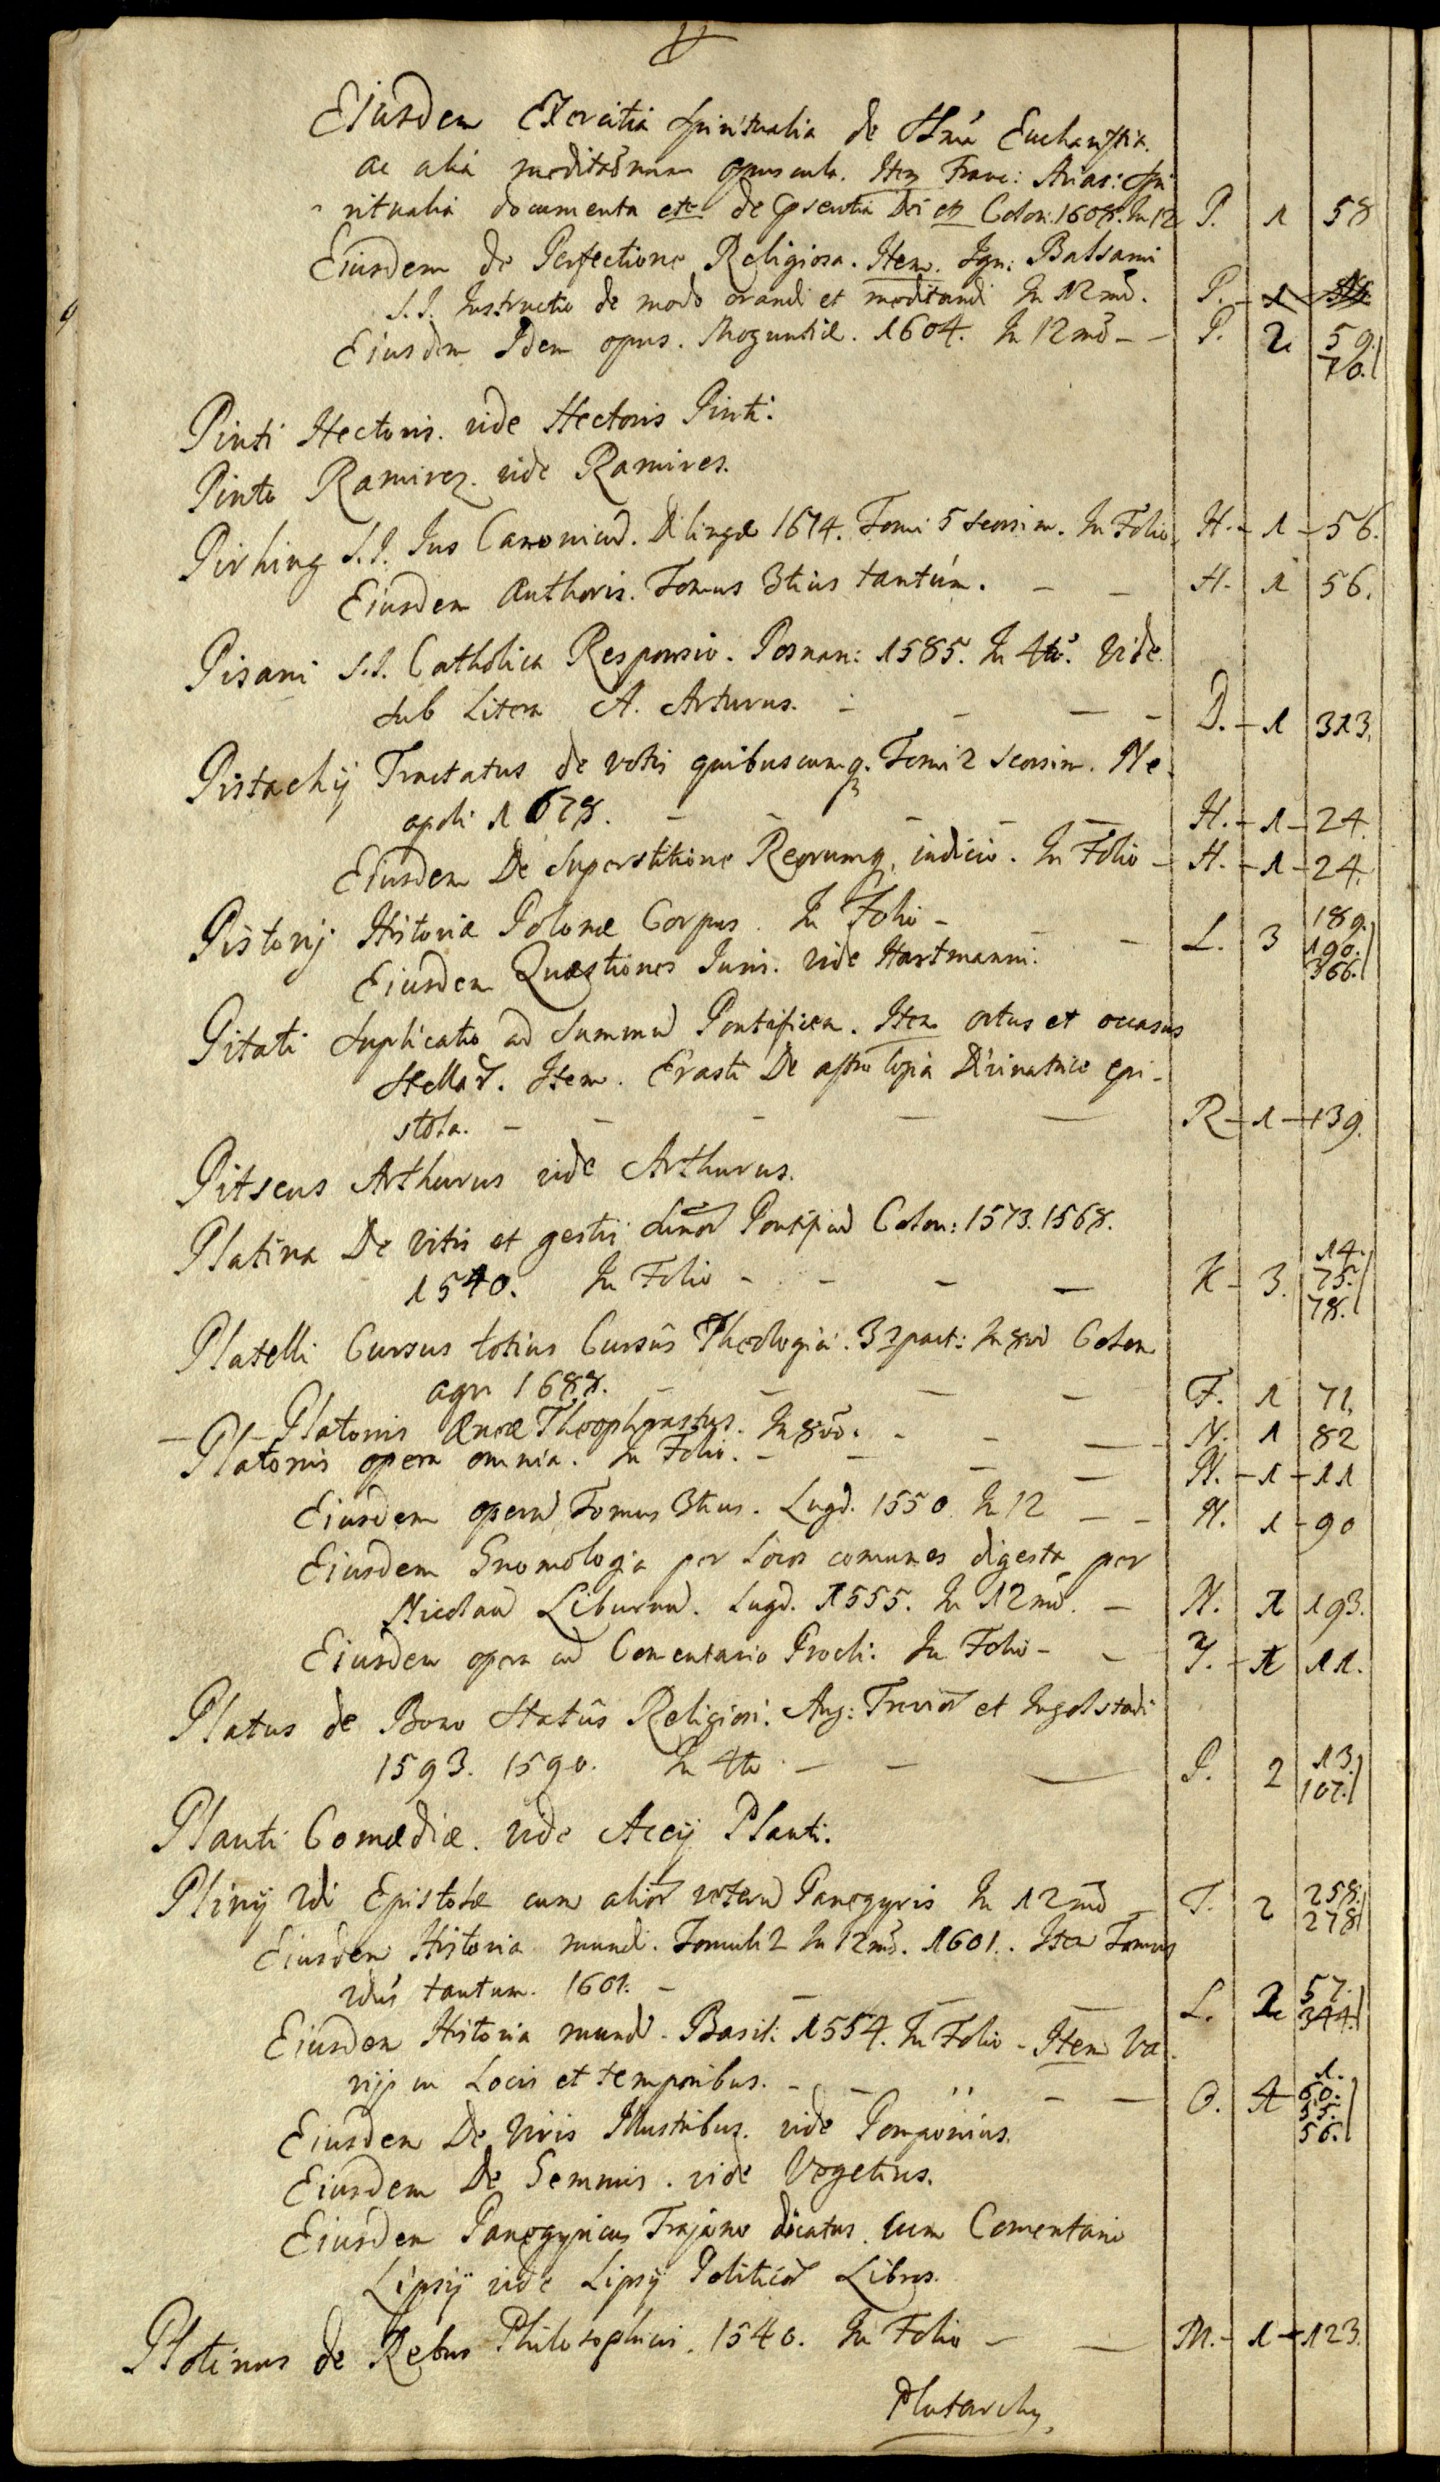 Eiusdem Exercitia Spiritualia de SSmâ Eucharistia.
ac alia meditõnum opuscula. Item Franc: Arias: Spi
ritualia documenta etc de Psentia Dei et Colon: 1608. In 12 P. 1 58
Eiusdem de Perfectione Religiosa. Item. Ign: Balsami
S.J. Instructio de modo orandi et meditandi In 12mo. P. - 1
Eiusdem Idem opus. Moguntiæ. 1604. In 12mo - - P. 2 59. 70.
Pinti Hectoris. vide Hectoris Pinti.
Pinto Ramirez. vide Ramires.
Pirhing S.J. Jus Canonicũ. Dilingæ 1674. Tomi 5 seorsim. In Folio. H. - 1 - 56.
Eiusdem Authoris. Tomus 3tius tantùm. - - H. 1 56.
Pisani S.J. Catholica Responsio. Posnan: 1585. In 4to. Vide
sub Litera A. Arturus. - - - - D. - 1 313.
Pistachij Tractatus de votis quibuscumq. Tomi 2 seorsim. Ne
apoli 1678. - - - - H. - 1 - 24.
Eiusdem De Superstitione Reorumq, indicio. In Folio - H. - 1 - 24.
Pistorij Historiæ Polonæ Corpus. In Folio - - - L. 3 189. 190. 366.
Eiusdem Quæstiones Juris. vide Hartmanni.
Pitati Suplicatio ad Summũ Pontificem. Item ortus et occasus
Stellar̃. Item. Erasti De astrologia Divinatrice epi-
stola. - - - - - R - 1 - 139.
Pitseus Arthurus vide Arthurus.
Platina De Vitis et gestis Sum̃or̃ Pontificũ Colon: 1573. 1568.
1540. In Folio - - - - K - 3. 14. 75. 78.
Platelli Cursus totius Cursûs Theologiæ. 3 2 part: In 8vo Colon
agri 1688. - - - - F. 1 71.
- Platonis Æneæ Theophrastus. In 8vo. - - - N. 1 82
Platonis opera omnia. In Folio. - - - - N. - 1 - 11
Eiusdem operũ Tomus 3tius. Lugd. 1550 In 12 - - N. 1 - 90
Eiusdem Gnomologia per Locos comunes digesta per
Nicolaũ Liburnũ. Lugd. 1555. In 12mo. - N. 1 193.
Eiusdem opera cũ Comentario Procli. In Folio - - 1 11.
Platus de Bono Statûs Religiosi. Aug: Trevir̃ et Ingolstadi
1593. 1590. In 4to - - - P. 2 13. 107.
Plauti Comædiæ. vide Accij Plauti.
Plinij 2di Epistolæ cum alior̃ veterũ Panegyris In 12mo - T. 2 258. 278
Eiusdem Historia mundi. Tomuli 2 In 12mo. 1601. Item Tomus
2dus tantum. 1601. - - - - L. 2 57. 344.
Eiusdem Historia mundi. Basil: 1554. In Folio - Item Va
rijs in Locis et temporibus. - - - - O. 4 1. 60. 55. 56.
Eiusdem De Viris Illustribus. vide Pomponius.
Eiusdem De Gemmis. vide Vegetius.
Eiusdem Panegyricus Trajano dicatus. Cum Comentario
Lipsij vide Lipsij Politicor̃ Libros.
Plotinus de Rebus Philosophicis. 1540. In Folio - - M. - 1 - 123.
Plutarchus.